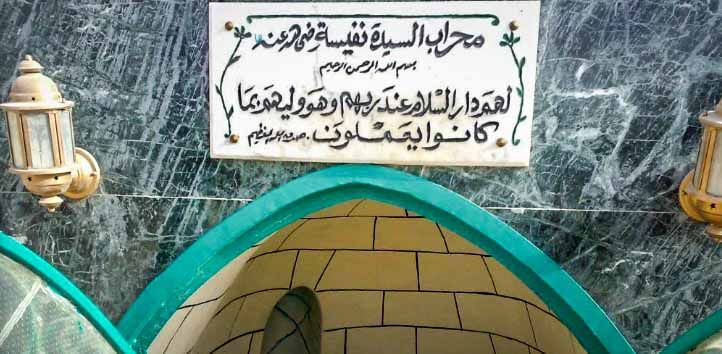 محراب السيدة نفيسة رضى الله عنها
بسم الله الرحمن الرحيم
لهم دار السلام عند ربهم وهو وليهم بما
كانوا يعملون. صدق الله العظيم